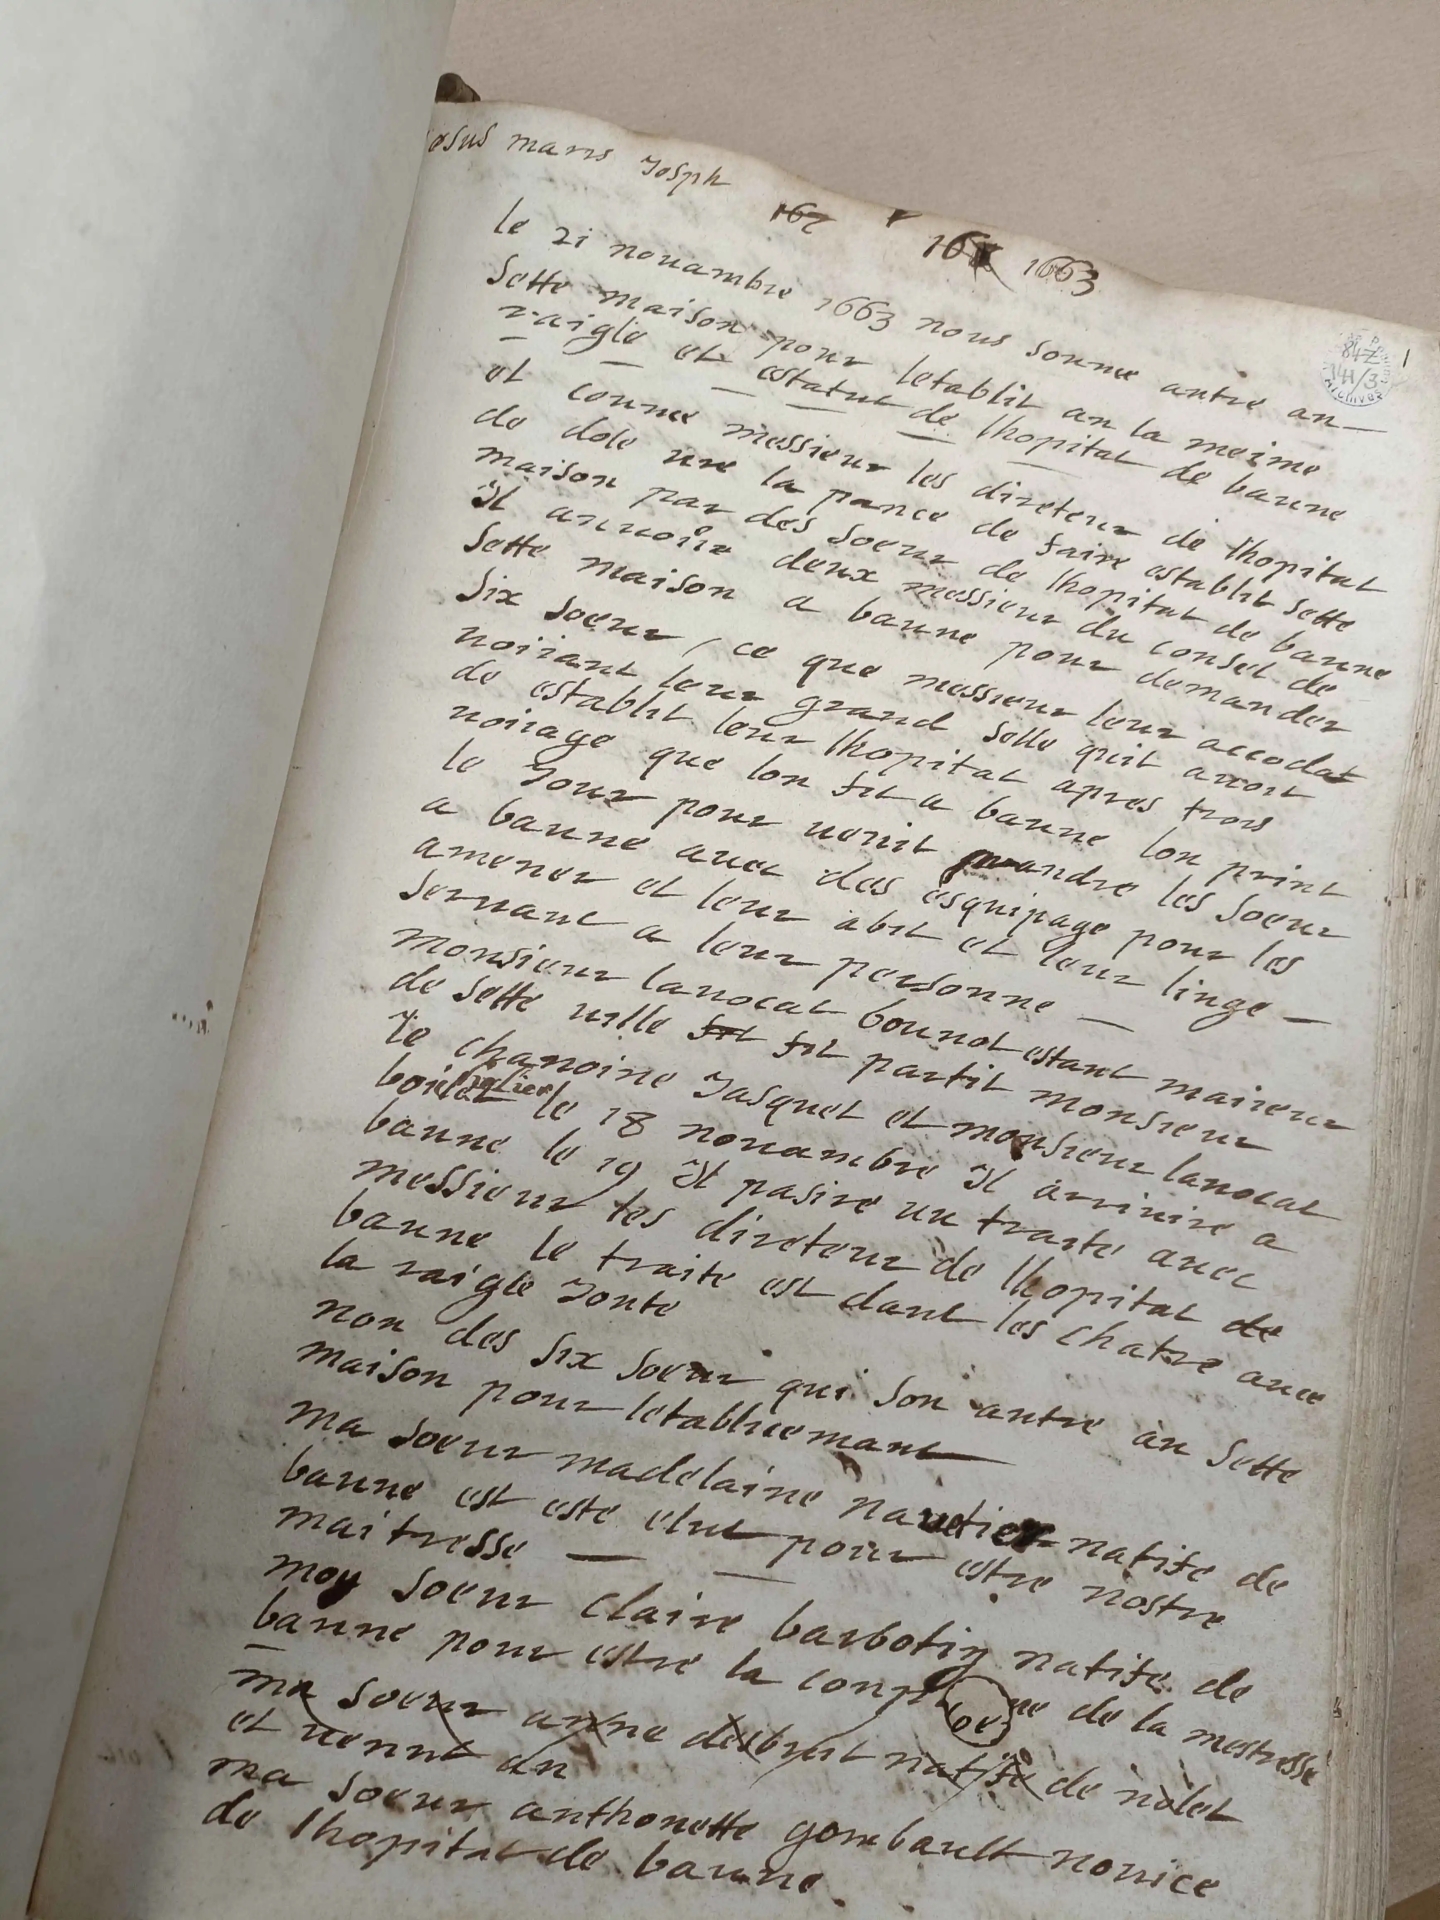 esus maris Josph
167 16 1663
84Z
141/3
1
le 21 nouambre 1663 nous sonme antre an
sette maison pour letablit an la meime
raigle et estatut de lhopital de baune
et conme messieur les direteur de lhopital
de dole ure la pance de faire establit sette
maison par des soeur de lhopital de baune
Jl anuoire deux messieur du consel de
sette maison a baune pour demander
six soeur, ce que messieur leur accodat
uoiiant leur grand selle quil auoit
de establit leur lhopital apres trois
uoiiage que lon fit a baune lon print
le Jour pour uenit prandre les soeur
a baune auec des esquipage pour les
amener et leur abit et leur linge
seruant a leur personne
monsieur lauocat bounot estant maieur
de sette uille fit fit partit monsieur
le chanoine Jasquet et monsieur lauocat
le 18 nouambre Jl ariuire a
baune le 19 Jl pasire un traite auec
messieur les direteur de lhopital de
baune le traite est dant les chatre auec
la raigle Jonte
non des six soeur qui son antre an sette
maison pour letabliemant
ma soeur madelaine natife de
baune est este elut pour estre nostre
maitresse
moy soeur claire barbotiy natife de
baune pour estre la de la mestresse
ma soeur anne natife de nolet
et uenut an
ma soeur anthonette gombault nouice
de lhopital de baune.